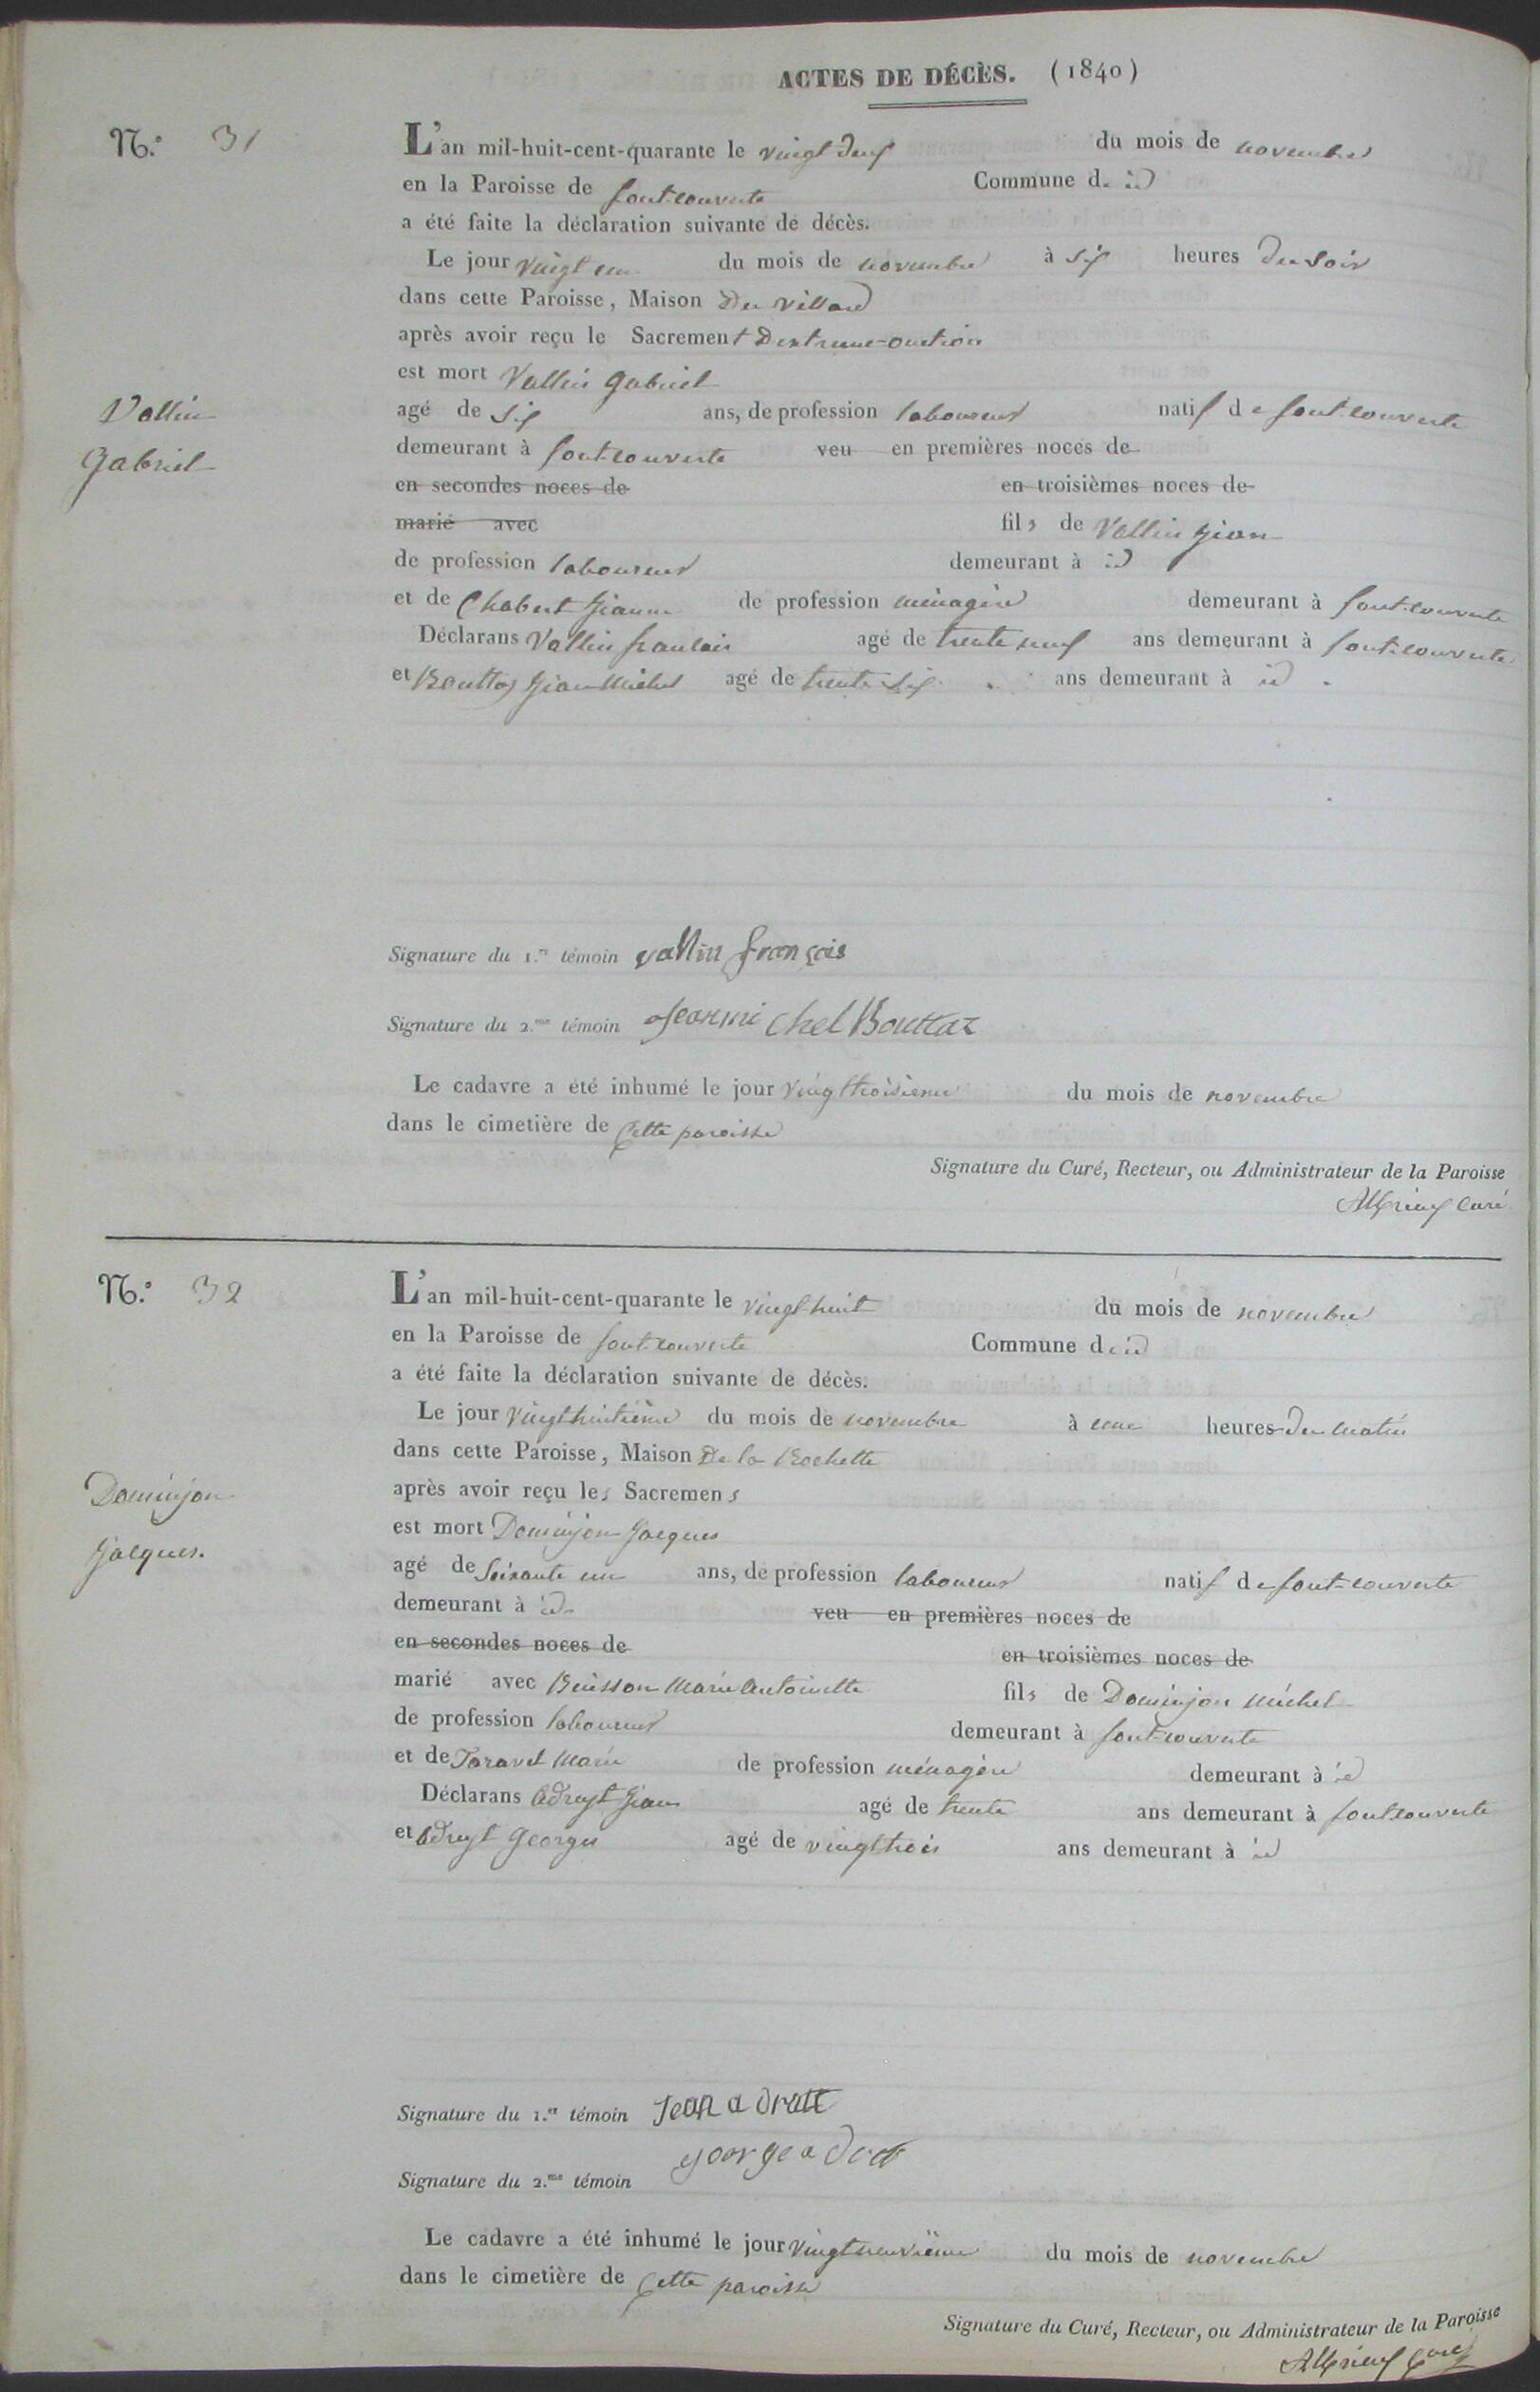 ACTES DE DÉCÈS. (1840)
N.º 31
L'an mil-huit-cent-quarante le vingt deux du mois de novembre
en la Paroisse de fontcouverte Commune d. id
a été faite la déclaration suivante de décès.
Le jour vingt un du mois de novembre à six heures du soir
dans cette Paroisse, Maison Du Villard
après avoir reçu le Sacrement Dextreme-onction
est mort Vallin Gabriel
Vallin
Gabriel
agé de six ans, de profession laboureur natif de fontcouverte
demeurant à fontcouverte veu en premières noces de
en secondes noces de en troisièmes noces de
marié avec fils de Vallin Jean
de profession laboureur demeurant à id
et de Chabert Jeanne de profession ménagère demeurant à fontcouverte
Déclarans Vallin francois agé de trente neuf ans demeurant à fontcouverte
et Bouttaz Jean Michel agé de trente six ans demeurant à id.
Signature du 1.er témoin vallin françois
Signature du 2.me témoin Jeanmi chel Bouttaz
Le cadavre a été inhumé le jour vingttroisieme du mois de novembre
dans le cimetière de cette paroisse
Signature du Curé, Recteur, ou Administrateur de la Paroisse
curé
N.º 32
L'an mil-huit-cent-quarante le vingt huit du mois de novembre
en la Paroisse de fontcouverte Commune d. id
a été faite la déclaration suivante de décès.
Le jour vingthuitième du mois de novembre à une heures du matin
dans cette Paroisse, Maison De la Rochette
après avoir reçu les Sacremens
est mort Dominjon Jacques
Dominjon
Jacques.
agé de soixante un ans, de profession laboureur natif de font-couverte
demeurant à id. veu en premières noces de
en secondes noces de en troisièmes noces de
marié avec Buisson Marie Antoinette fils de Dominjon Michel
de profession laboureur demeurant à fontcouverte
et de Taravel Marie de profession ménagère demeurant à id
Déclarans Adreyt Jean agé de trente ans demeurant à fontcouverte
et Adreyt Georges agé de vingttrois ans demeurant à id
Signature du 1.er témoin Jean a dratt
Signature du 2.me témoin
Le cadavre a été inhumé le jour vingtneuvième du mois de novembre
dans le cimetière de cette paroisse
Signature du Curé, Recteur, ou Administrateur de la Paroisse